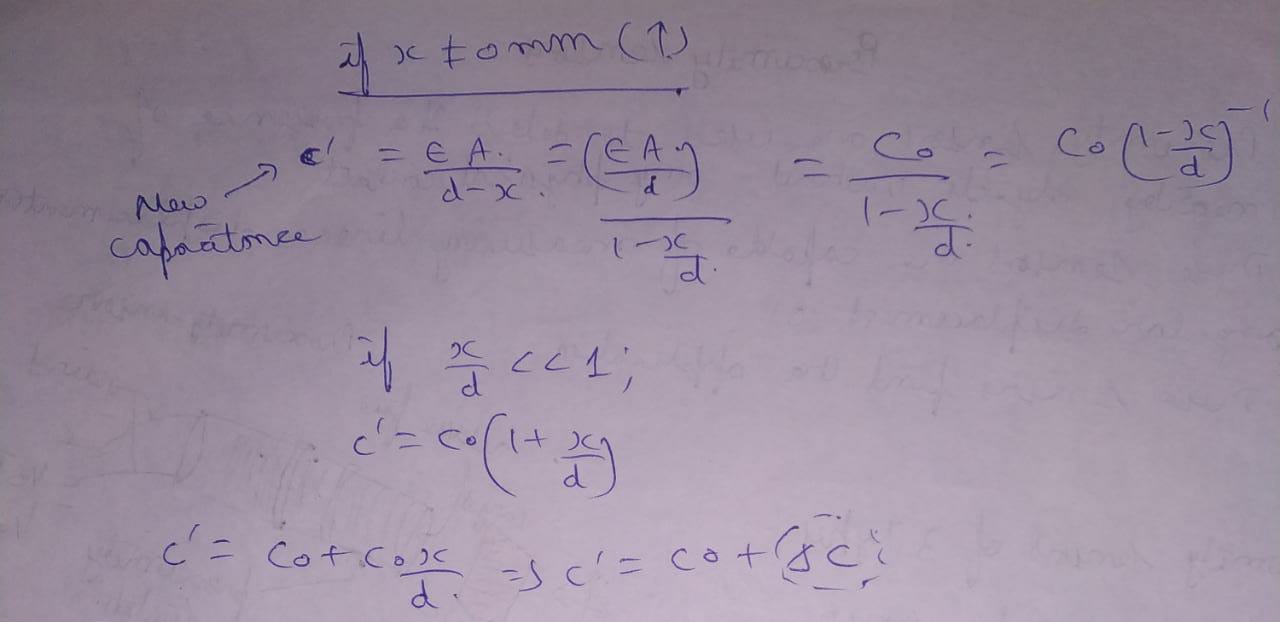 if x ≠ 0 mm (↑)
New capacitance → c' = ∈ A. / d-x. = (∈ A. / d) / 1 - x/d. = Co / 1 - x/d. = Co (1 - x/d)^-1
if x/d << 1;
c' = co (1 + x/d)
c' = co + co x/d. => c' = co + (δc);